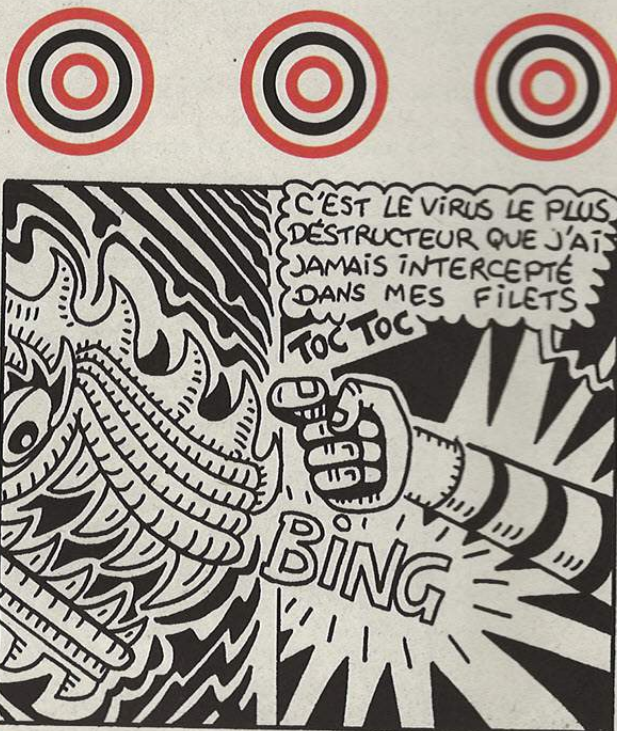 C'EST LE VIRUS LE PLUS
DÉSTRUCTEUR QUE J'AI
JAMAIS INTERCEPTÉ
DANS MES FILETS
TOC TOC
BING